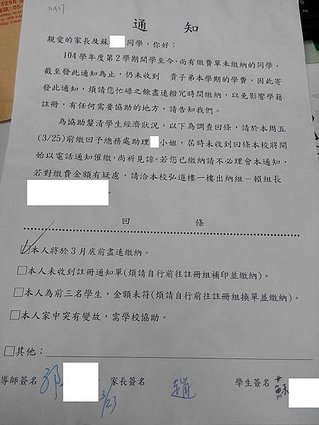 通知
親愛的家長及蘇 同學，你好：
104學年度第2學期開學至今，尚有繳費單未繳納的同學，
截至發此通知為止，仍未收到 貴子弟本學期的學費，因此寄
發此通知，煩請您忙碌之餘盡速撥冗時間繳納，以免影響學籍
註冊，有任何需要協助的地方，請告知我們。
為協助釐清學生經濟狀況，以下為調查回條，請於本周五
(3/25)前繳回予總務處助理 小姐，屆時未收到回條本校將開
始以電話通知催繳，尚祈見諒。若您已繳納請不必理會本通知，
若對繳費金額有疑慮，請洽本校弘道樓一樓出納組－賴組長
回條
本人將於3月底前盡速繳納。
□本人未收到註冊通知單(煩請自行前往註冊組補印並繳納)。
□本人為前三名學生，金額未符(煩請自行前往註冊組換單並繳納)。
□本人家中突有變故，需學校協助。
□其他：
導師簽名 郭 3/23 家長簽名 趙 學生簽名 蘇